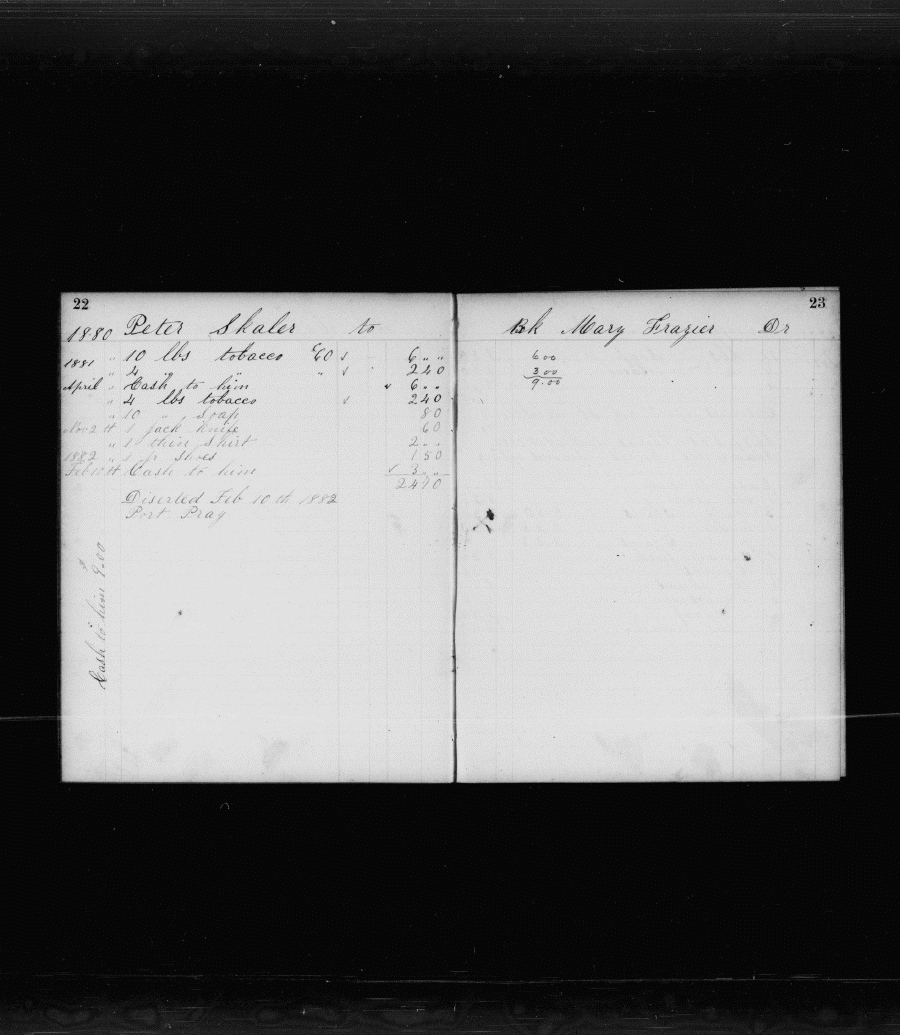 22
1880 Peter Skaler to
" 10 lbs tobacco 60 6 " "
1881 " 4 " " " 240
April " Cash to him 6 " "
" 4 lbs tobacco 240
" 10 " soap 80
Nov 2 " 1 jack knife 60
" 1 thin shirt 2 " "
1882 " 1 pr shoes 150
Feb 10th Cash to him 3 " "
2470
Diserted Feb 10th 1882
Port Pray
Cash to him 9.00
23
Bk Mary Frazier Dr
6 00
3.00
9.00